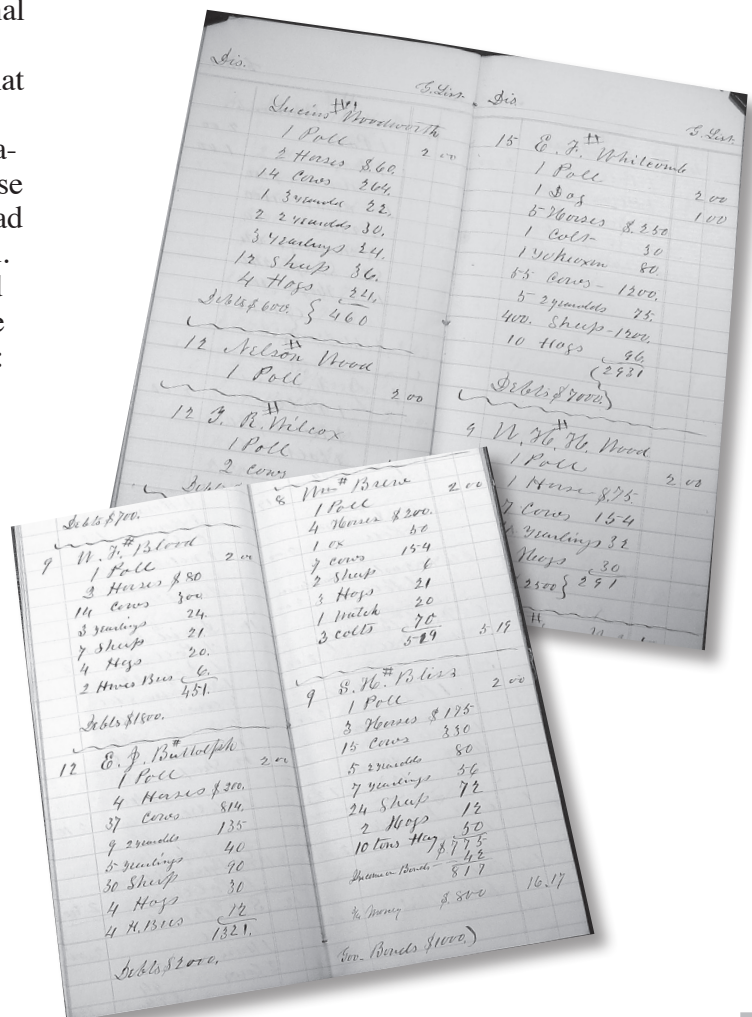 nal
hat
a-
se
ad
l
e
:
Dis.
G. List.
Lucius Woodworth
1 Poll 2 00
2 Horses $60.
14 Cows 264.
1 3 yearold 22.
2 2 yearolds 30.
3 Yearlings 24.
12 Sheep 36.
4 Hogs 24.
Debts $600. } 460
12 Nelson Wood
1 Poll 2 00
12 J. R. Wilcox
1 Poll
2 cows
Dis
G. List.
15 E. F. Whitcomb
1 Poll 2 00
1 Dog 1 00
5 Horses $.250
1 Colt- 30
80
55 Cows- 1200.
5- 2 yearolds 75.
400. Sheep-1200.
10 Hogs 96.
(2931
Debts $7000.)
9 W. H. H. Wood
1 Poll 2 00
1 Horse $.75
7 Cows 154
Yearlings 32
Hogs 30
2500 } 291
Debts $700.
9 W. F. Blood
1 Poll 2 00
2 Horses $80
14 Cows 300
3 yearlings 24.
7 Sheep 21
4 Hogs 20.
2 Hives Bees 6.
451.
Debts $1800.
12 E. J. Buttolph
1 Poll 2 00
4 Horses $200.
37 Cows 814.
9 2 yearolds 135
5 yearlings 40
30 Sheep 90
4 Hogs 30
4 H. Bees 12
1321.
Debts $2000.
8 Brene
1 Poll 2 00
4 Horses $200.
1 ox 50
7 cows 154
2 Sheep 6
3 Hogs 21
1 Watch 20
3 Colts 70
519 5.19
9 S. H. Bliss
1 Poll 2 00
3 Horses $175
15 Cows 330
5 2 yearolds 80
7 yearlings 56
24 Sheep 72
2 Hogs 12
10 tons Hay 50
$775
Income on Bonds- 42
817
Money $.800 16.17
Gov- Bonds $1000.)